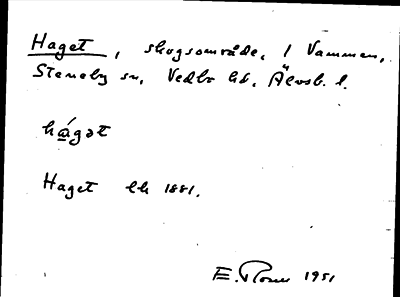 Haget, skogsområde, 1 Vammen,
Steneby sn, Vedbo hd, Älvsb. l.
hágət
Haget ek 1881.
E. 1951